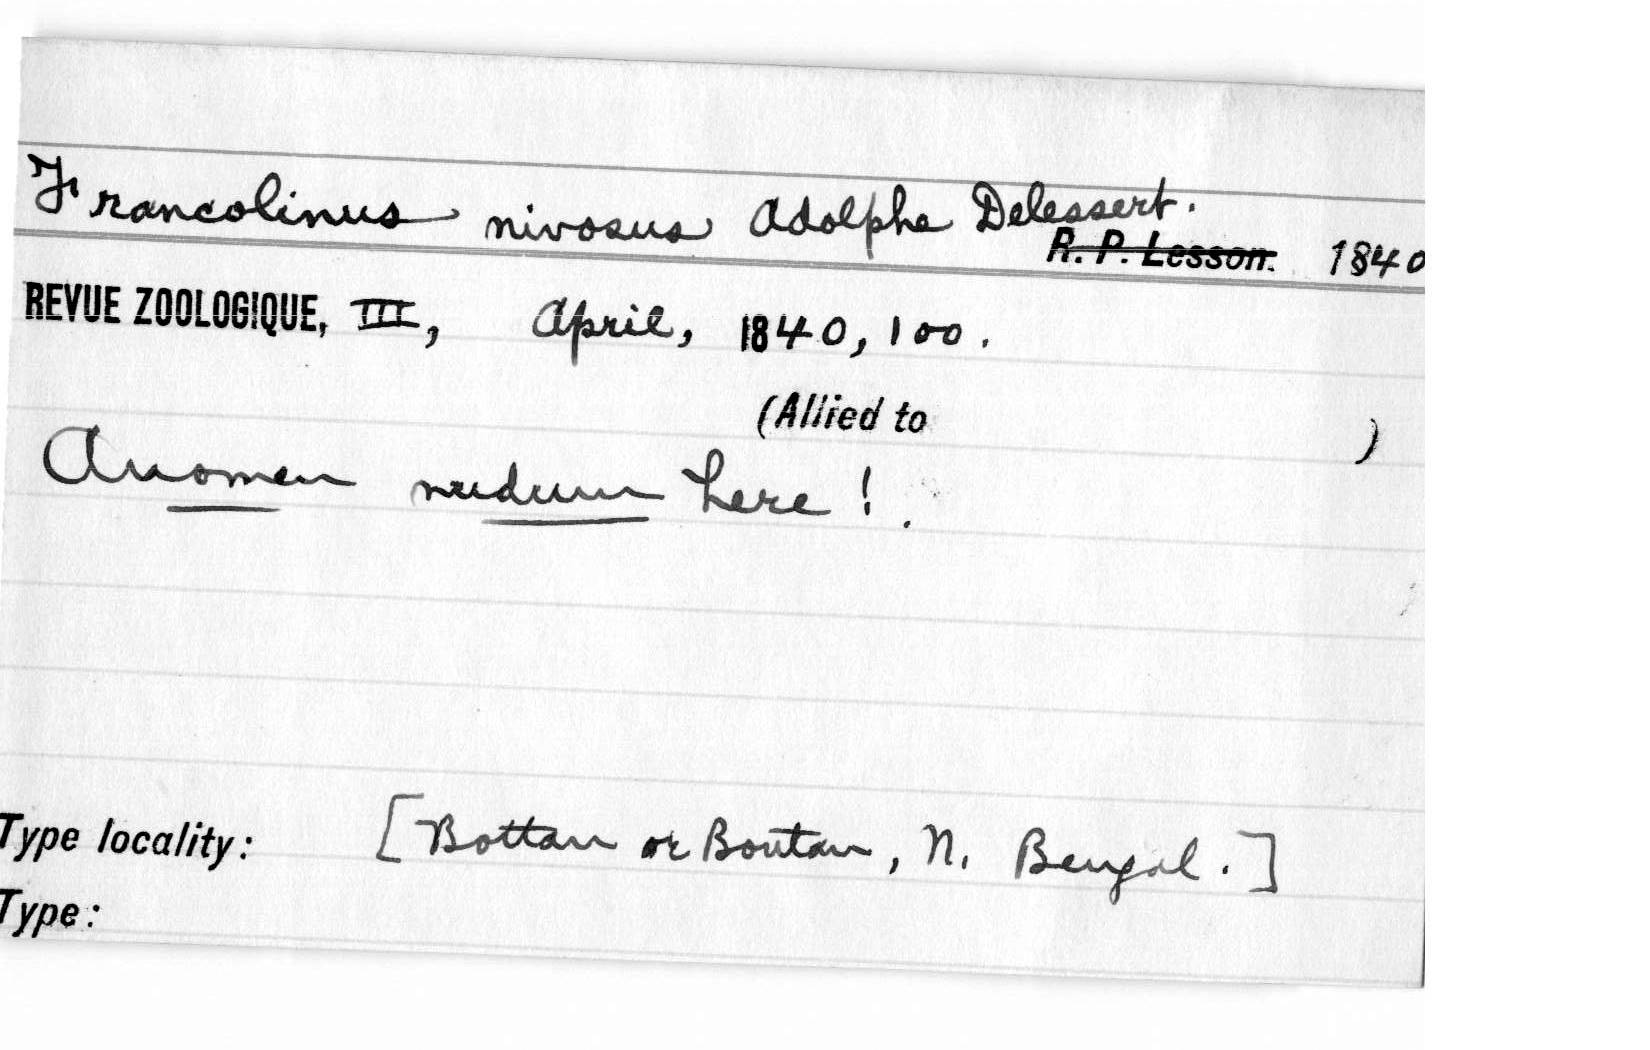 Francolinus nivosus Adolphe Delessert.
R. P. Lesson. 1840
REVUE ZOOLOGIQUE, III, April, 1840, 100.
(Allied to )
A nomen nudum here!
Type locality: [Bottan or Boutan, N. Bengal.]
Type: